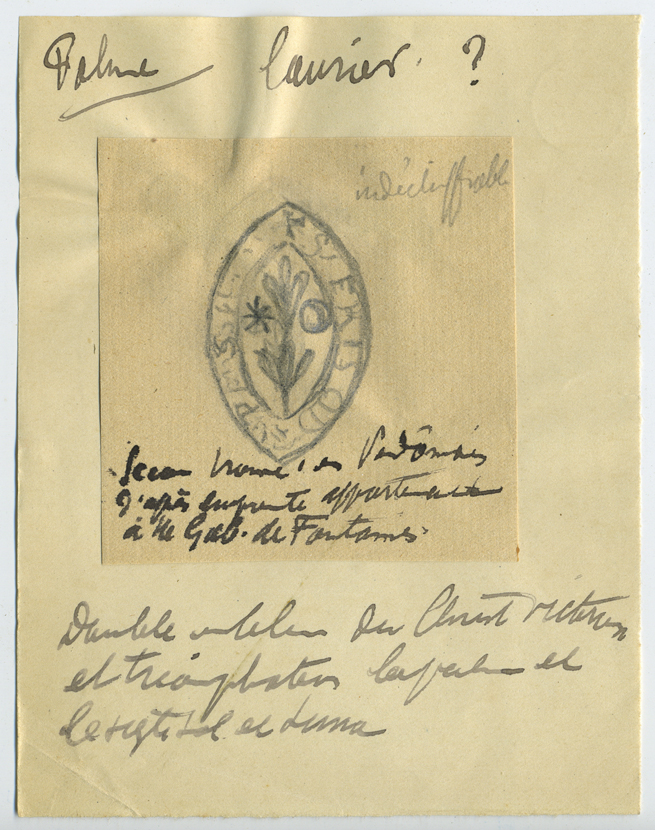 Palme laurier. ?
indéchiffrable
Sceau trouvé en Vendômois
D'après empreinte appartenant
à Mr Gab. de Fontaines
Double emblème du Christ victorieux
et triomphateur la palme et
le sigle sol et luna